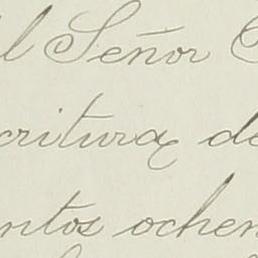 l Señor
critura de
ntos ochen